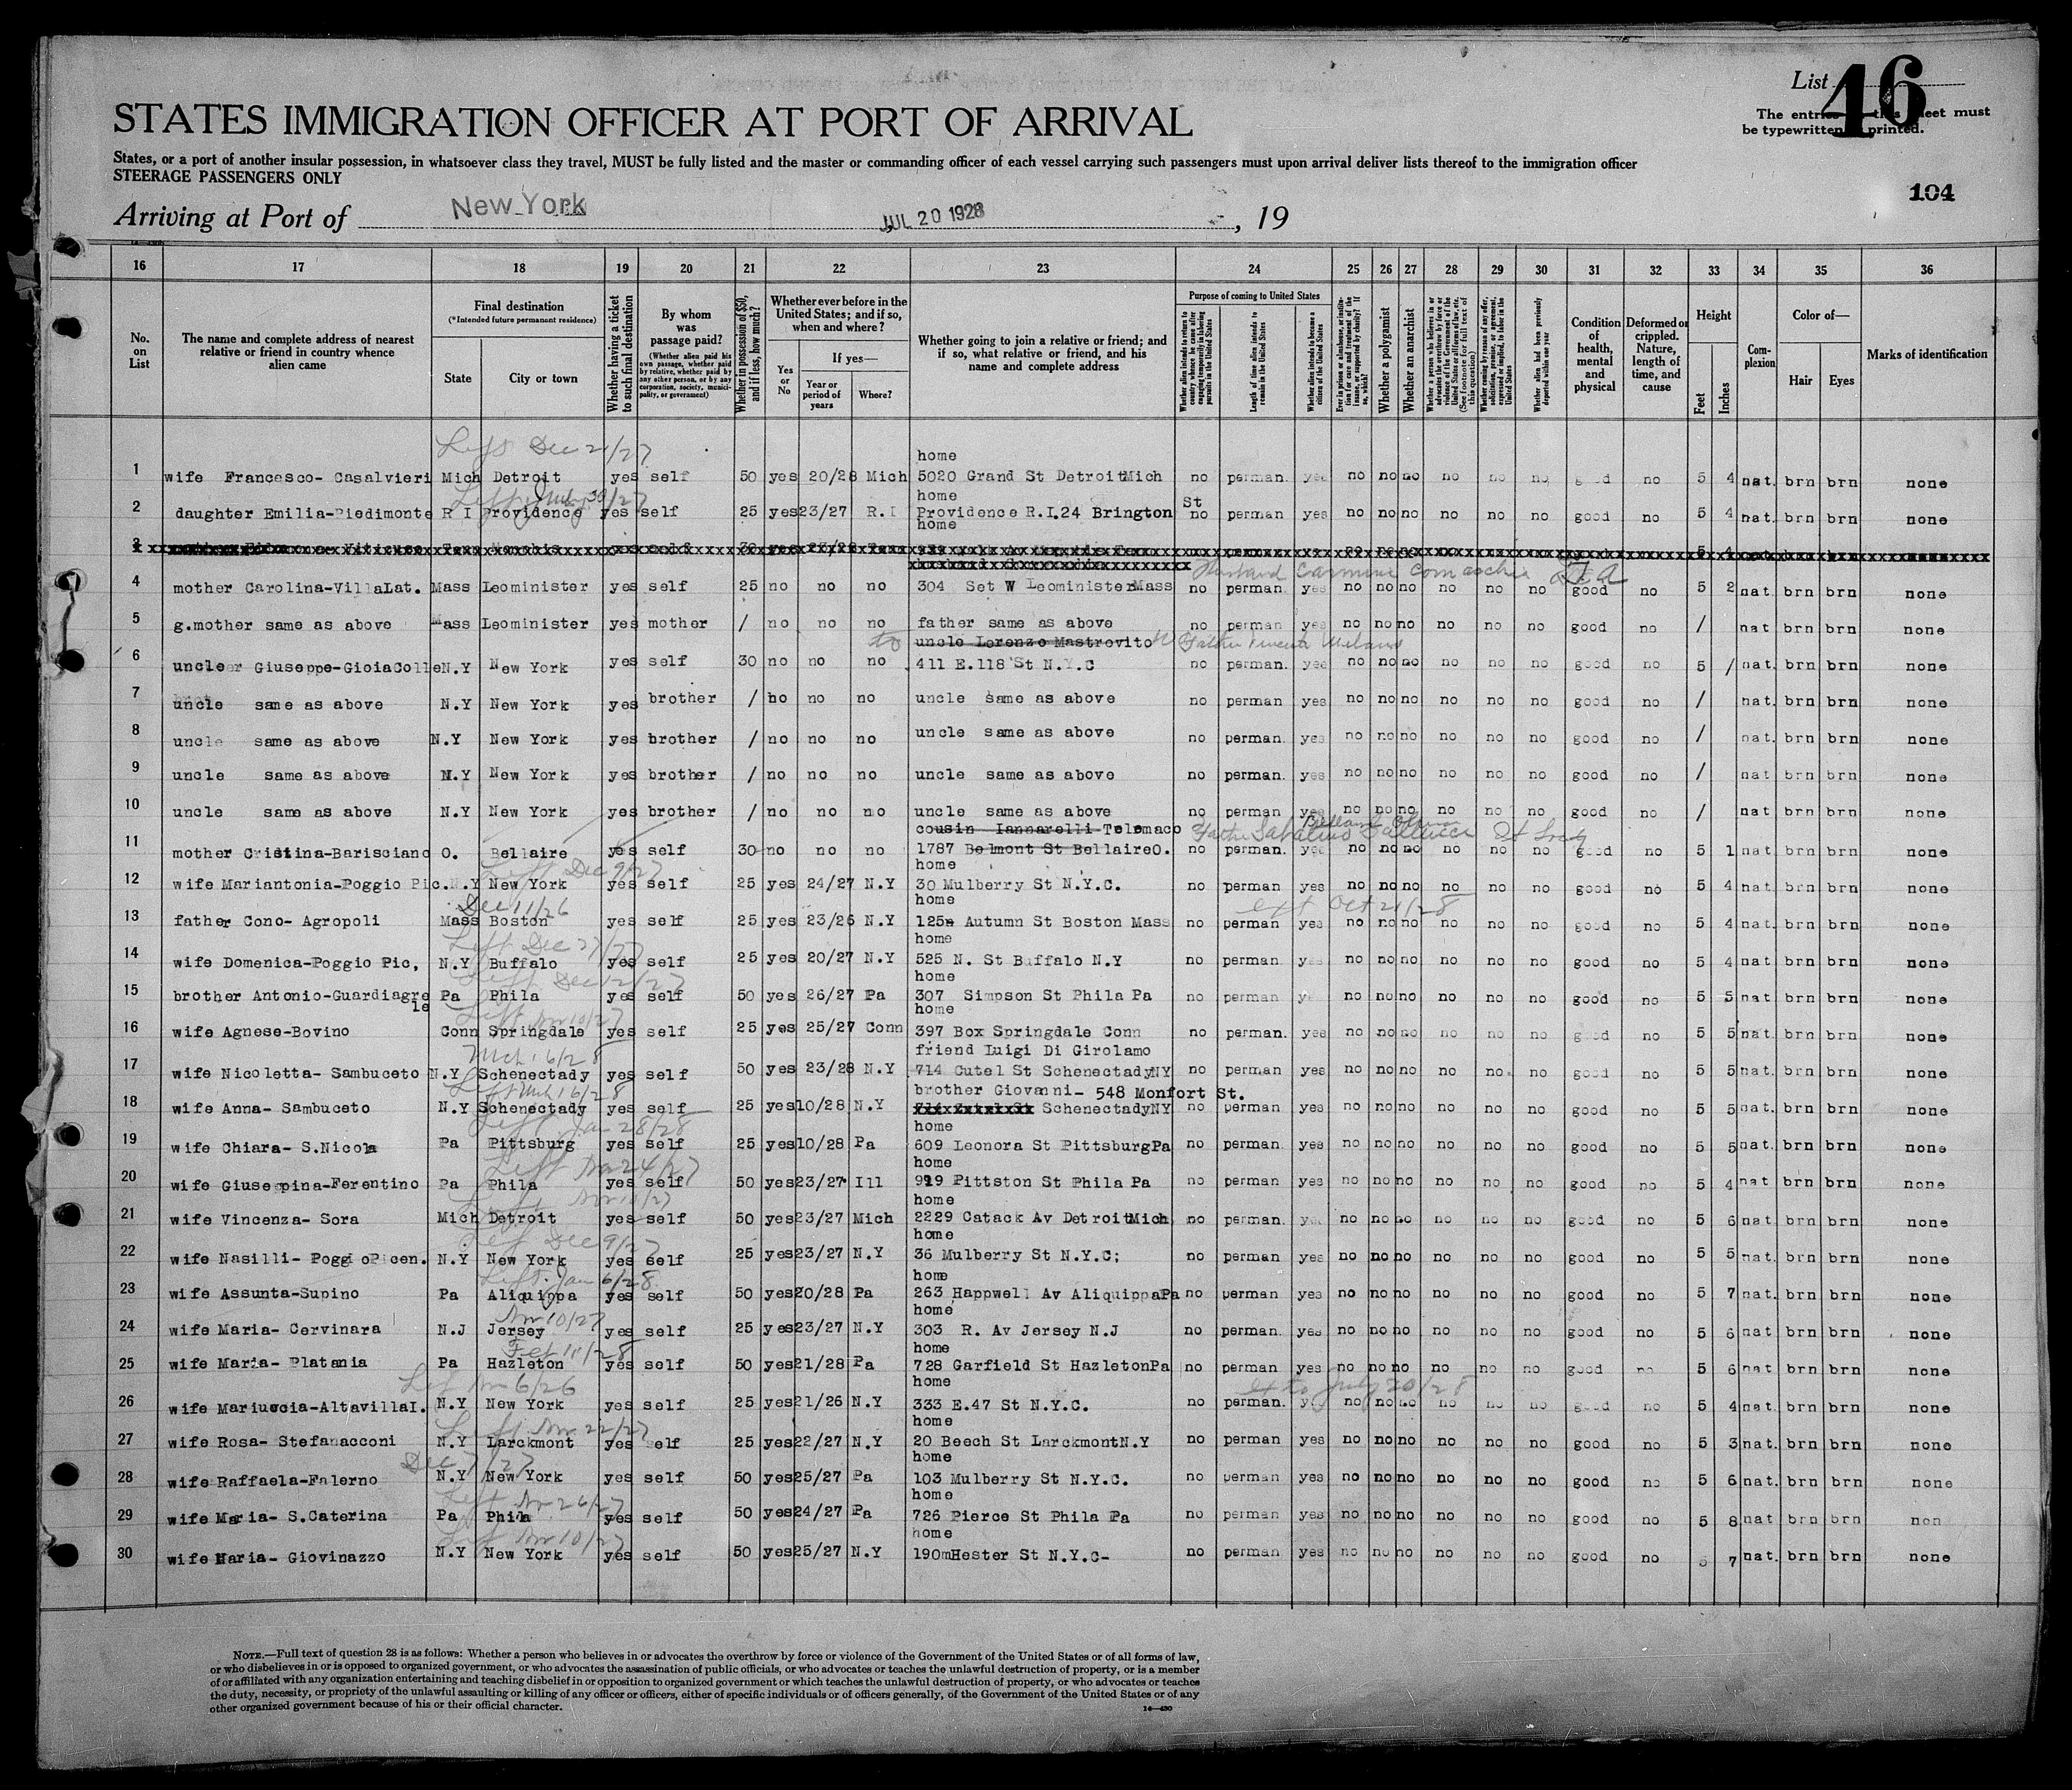 List 46
The entries this sheet must
be typewritten printed.
STATES IMMIGRATION OFFICER AT PORT OF ARRIVAL
States, or a port of another insular possession, in whatsoever class they travel, MUST be fully listed and the master or commanding officer of each vessel carrying such passengers must upon arrival deliver lists thereof to the immigration officer
STEERAGE PASSENGERS ONLY
104
Arriving at Port of New York JUL 20 1928, 19
16 17 18 19 20 21 22 23 24 25 26 27 28 29 30 31 32 33 34 35 36
No. on List
The name and complete address of nearest relative or friend in country whence alien came
Final destination
(*Intended future permanent residence)
State
City or town
Whether having a ticket to such final destination
By whom was passage paid?
(Whether alien paid his own passage, whether paid by relative, whether paid by any other person, or by any corporation, society, municipality, or government)
Whether in possession of $50, and if less, how much?
Whether ever before in the United States; and if so, when and where?
Yes or No
If yes—
Year or period of years
Where?
Whether going to join a relative or friend; and if so, what relative or friend, and his name and complete address
Purpose of coming to United States
Whether alien intends to return to country whence he came after engaging temporarily in laboring pursuits in the United States
Length of time alien intends to remain in the United States
Whether alien intends to become a citizen of the United States
Ever in prison or almshouse, or institution for care and treatment of the insane, or supported by charity? If so, which?
Whether a polygamist
Whether an anarchist
Whether a person who believes in or advocates the overthrow by force or violence of the Government of the United States or all forms of law, etc. (See footnote for full text of this question)
Whether coming by reason of any offer, solicitation, promise, or agreement, expressed or implied, to labor in the United States
Whether alien had been previously deported within one year
Condition of health, mental and physical
Deformed or crippled. Nature, length of time, and cause
Height
Feet
Inches
Complexion
Color of—
Hair
Eyes
Marks of identification
Left Dec 21/27
home
1 wife Francesco- Casalvieri Mich Detroit yes self 50 yes 20/28 Mich 5020 Grand St DetroitMich no perman. yes no no no no no no good no 5 4 nat. brn brn none
home
2 daughter Emilia-Piedimonte R I Providence yes self 25 yes 23/27 R.I Providence R.I.24 Brington St no perman yes no no no no no no good no 5 4 nat. brn brn none
home
3
Husband Carmine Comaschi
4 mother Carolina-VillaLat. Mass Leominister yes self 25 no no no 304 Set W LeoministerMass no perman. yes no no no no no no good no 5 2 nat. brn brn none
5 g.mother same as above Mass Leominister yes mother / no no no father same as above no perman yes no no no no no no good no / nat brn brn none
to uncle Lorenzo Mastrovito Father
6 uncleer Giuseppe-GioiaColle N.Y New York yes self 30 no no no 411 E.118 St N.Y.C no perman. yes no no no no no no good no 5 / nat. brn brn none
7 uncle same as above N.Y New York yes brother / ho no no uncle same as above no perman yes no no no no no no good no / nat. brn brn none
8 uncle same as above N.Y New York yes brother / no no no uncle same as above no perman. yes no no no no no no good no / nat. brn brn none
9 uncle same as above N.Y New York yes brother / no no no uncle same as above no perman. yes no no no no no no good no / nat brn brn none
10 uncle same as above N.Y New York yes brother / no no no uncle same as above no perman yes no no no no no no good no / nat brn brn none
cousin Iannarelli-Telemaco Father Sabatino
11 mother Cristina-Barisciano O. Bellaire yes self 30 no no no 1787 Belmont St BellaireO. no perman. yes no no no no no no good no 5 1 nat. brn brn none
Left Dec 9/27 home
12 wife Mariantonia-Poggio Pic. N.Y New York yes self 25 yes 24/27 N.Y 30 Mulberry St N.Y.C. no perman yes no no no no no no good no 5 4 nat. brn brn none
Dec 11/26 home ext Oct 21/28
13 father Cono- Agropoli Mass Boston yes self 25 yes 23/26 N.Y 125 Autumn St Boston Mass no perman yes no no no no no no good no 5 4 nat. brn brn none
Left Dec 27/27 home
14 wife Domenica-Poggio Pic, N.Y Buffalo yes self 25 yes 20/27 N.Y 525 N. St Buffalo N.Y no perman yes no no no no no no good no 5 4 nat. brn brn none
Left Dec 12/27 home
15 brother Antonio-Guardiagre le Pa Phila yes self 50 yes 26/27 Pa 307 Simpson St Phila Pa no perman no no no no no no good no 5 5 nat brn brn none
Left Nov 10/27 home
16 wife Agnese-Bovino Conn Springdale yes self 25 yes 25/27 Conn 397 Box Springdale Conn no perman. yes no no no no no no good no 5 5 nat. brn brn none
Mch 6/28 friend Luigi Di Girolamo
17 wife Nicoletta- Sambuceto N.Y Schenectady yes self 50 yes 23/28 N.Y 714 Cutel St SchenectadyNY no perman. yes no no no no no no good no 5 5 nat. brn brn none
Left Mch 16/28 brother Giovanni- 548 Monfort St.
18 wife Anna- Sambuceto N.Y Schenectady yes self 25 yes 10/28 N.Y SchenectadyNY no perman yes no no no no no no good no 5 5 nat. brn brn none
Left Jan 28/28 home
19 wife Chiara- S.Nicola Pa Pittsburg yes self 25 yes 10/28 Pa 609 Leonora St PittsburgPa no perman. yes no no no no no no good no 5 5 nat. brn brn none
Left Nov 24/27 home
20 wife Giuseppina-Ferentino Pa Phila yes self 50 yes 23/27 Ill 919 Pittston St Phila Pa no perman yes no no no no no no good no 5 4 nat brn brn none
Left Nov 10/27 home
21 wife Vincenza- Sora Mich Detroit yes self 50 yes 23/27 Mich 2229 Catack Av DetroitMich no perman. no no no no no no good no 5 6 nat. brn brn none
Left Dec 9/27 home
22 wife Nasilli- Poggi oPicen. N.Y New York yes self 25 yes 23/27 N.Y 36 Mulberry St N.Y.C; no perman yes no no no no no no good no 5 5 nat. brn brn none
Left Jan 6/28 home
23 wife Assunta-Supino Pa Aliquippa yes self 50 yes 20/28 Pa 263 Happwell Av AliquippaPa no perman yes no no no no no no good no 5 7 nat. brn brn none
Nov 10/27 home
24 wife Maria- Cervinara N.J Jersey yes self 25 yes 23/27 N.Y 303 R. Av Jersey N.J no perman. yes no no no no no no good no 5 6 nat brn brn none
Feb 11/28 home
25 wife Maria- Platania Pa Hazleton yes self 50 yes 21/28 Pa 728 Garfield St HazletonPa no perman yes no no no no no no good no 5 6 nat brn brn none
Left Nov 6/26 home ext to July 20/28
26 wife Mariuccia-AltavillaI. N.Y New York yes self 25 yes 21/26 N.Y 333 E.47 St N.Y.C. no perman. no no no no no no good no 5 4 nat. brn brn none
Left Nov 22/27 home
27 wife Rosa- Stefanacconi N.Y Larckmont yes self 25 yes 22/27 N.Y 20 Beech St LarckmontN.Y no perman yes no no no no no no good no 5 3 nat. brn brn none
Dec 7/27 home
28 wife Raffaela-Falerno N.Y New York yes self 50 yes 25/27 Pa 103 Mulberry St N.Y.C. no perman yes no no no no no no good no 5 6 nat. brn brn none
Left Nov 26/27 home
29 wife Maria- S.Caterina Pa Phila yes self 50 yes 24/27 Pa 726 Pierce St Phila Pa no perman yes no no no no no no good no 5 8 nat brn brn non
Left Nov 10/27 home
30 wife Maria- Giovinazzo N.Y New York yes self 50 yes 25/27 N.Y 190mHester St N.Y.C- no perman yes no no no no no no good no 5 7 nat. brn brn none
NOTE.—Full text of question 28 is as follows: Whether a person who believes in or advocates the overthrow by force or violence of the Government of the United States or of all forms of law,
or who disbelieves in or is opposed to organized government, or who advocates the assassination of public officials, or who advocates or teaches the unlawful destruction of property, or is a member
of or affiliated with any organization entertaining and teaching disbelief in or opposition to organized government or which teaches the unlawful destruction of property, or who advocates or teaches
the duty, necessity, or propriety of the unlawful assaulting or killing of any officer or officers, either of specific individuals or of officers generally, of the Government of the United States or of any
other organized government because of his or their official character.
14—430